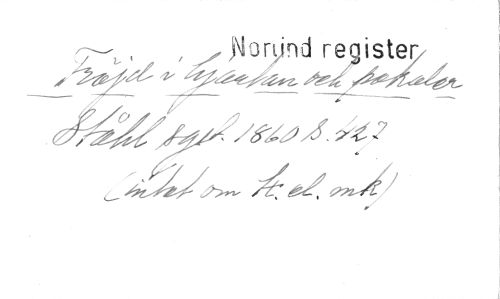 Norlind register
Fröjd i hjärtan och pokaler
Ståhl sgst. 1860 S. 427
(intet om H. el. mk)